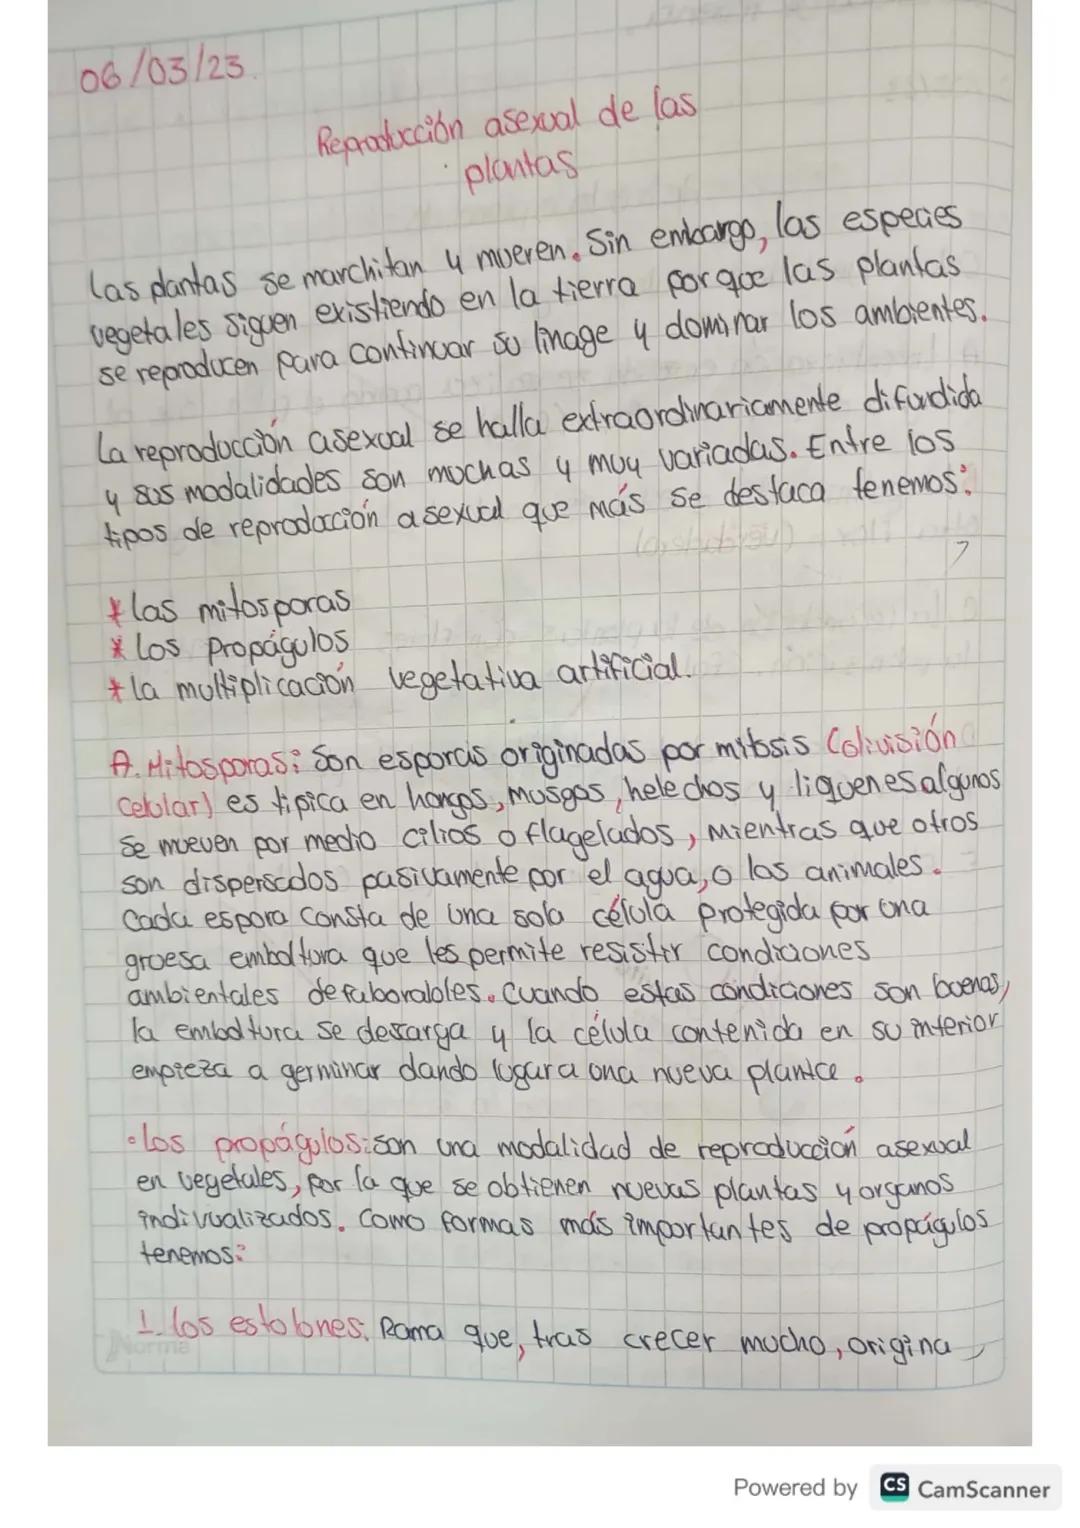 06/03/23.
Reproducción asexual de las
plantas
las plantas se marchitan y mueren. Sin embargo, las especies
vegetales siguen existiendo en la tierra porque las plantas
se reproducen para continuar su linage y dominar los ambientes.
La reproducción asexual se halla extraordinariamente difundida
y sus modalidades son muchas y muy variadas. Entre los
tipos de reproducción asexual que más se destaca tenemos:
* las mitosporas
* los propágulos
* la multiplicación vegetativa artificial.
A. Mitosporas: Son esporas originadas por mitosis (división
celular) es tipica en hongos, musgos, helechos y liquenes algunos
se mueven por medio cilios o flagelados, mientras que otros
son dispersados pasivamente por el agua, o los animales.
Cada espora consta de una sola célula protegida por una
gruesa emboltura que les permite resistir condiciones
ambientales defaborables. Cuando estas condiciones son buenas,
la emboltura se descarga y la célula contenida en su interior
empieza a germinar dando lugar a una nueva plantce.
• los propágulos: son una modalidad de reproducción asexual
en vegetales, por la que se obtienen nuevas plantas y organos
indivualizados. Como formas más importantes de propágulos
tenemos:
1. los estolones. Rama que, tras crecer mucho, origina
Norma
Powered by CS CamScanner